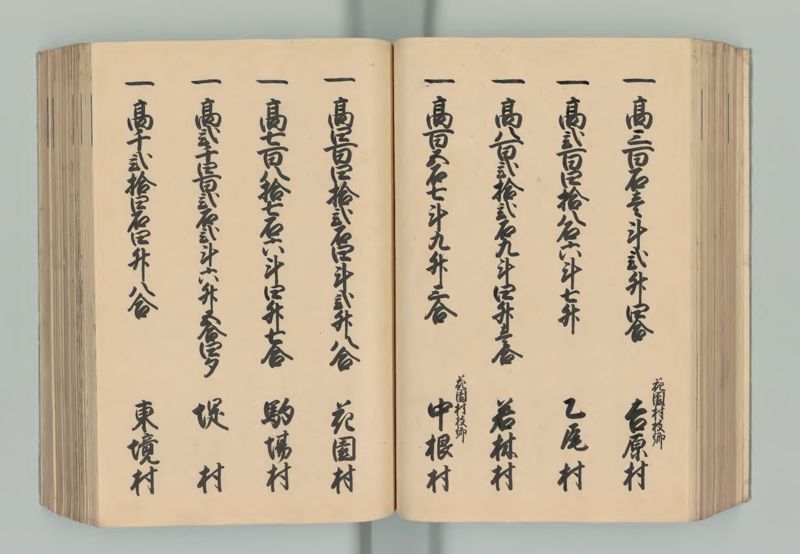 一 高三百石壱斗弐升四合
花園村枝郷
吉原村
一 高弐百四拾八石六斗七升
乙尾村
一 高八百弐拾弐石九斗四升壱合
若林村
一 高百五石七斗九升三合
花園村枝郷
中根村
一 高四百四拾弐石四斗弐升八合
花園村
一 高七百八拾七石六斗四升七合
駒場村
一 高弐千四百弐石弐斗六升五合四夕
堤 村
一 高千弐拾四石四升八合
東境村